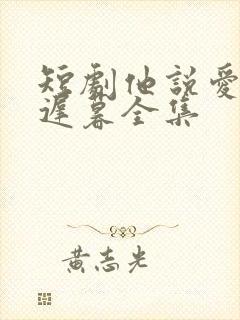 短劇他說愛
遲暮全集
黃志光